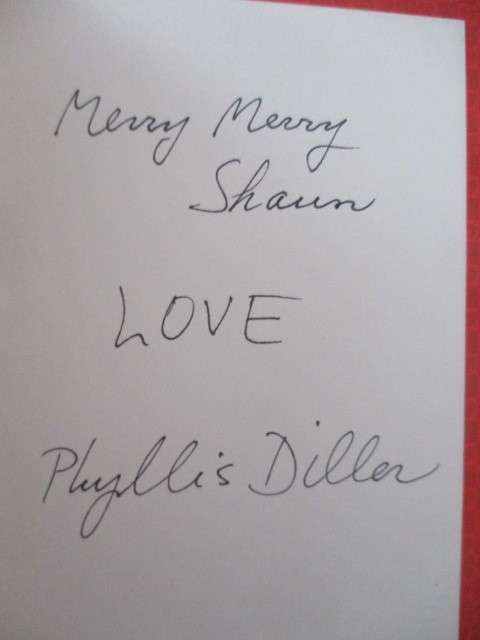 Merry Merry
Shaun
LOVE
Phyllis Diller